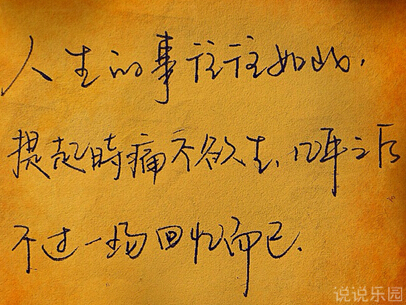 人生的事往往如此.
提起時痛不欲生.几年之后
不过一场回忆而已.
说说乐园